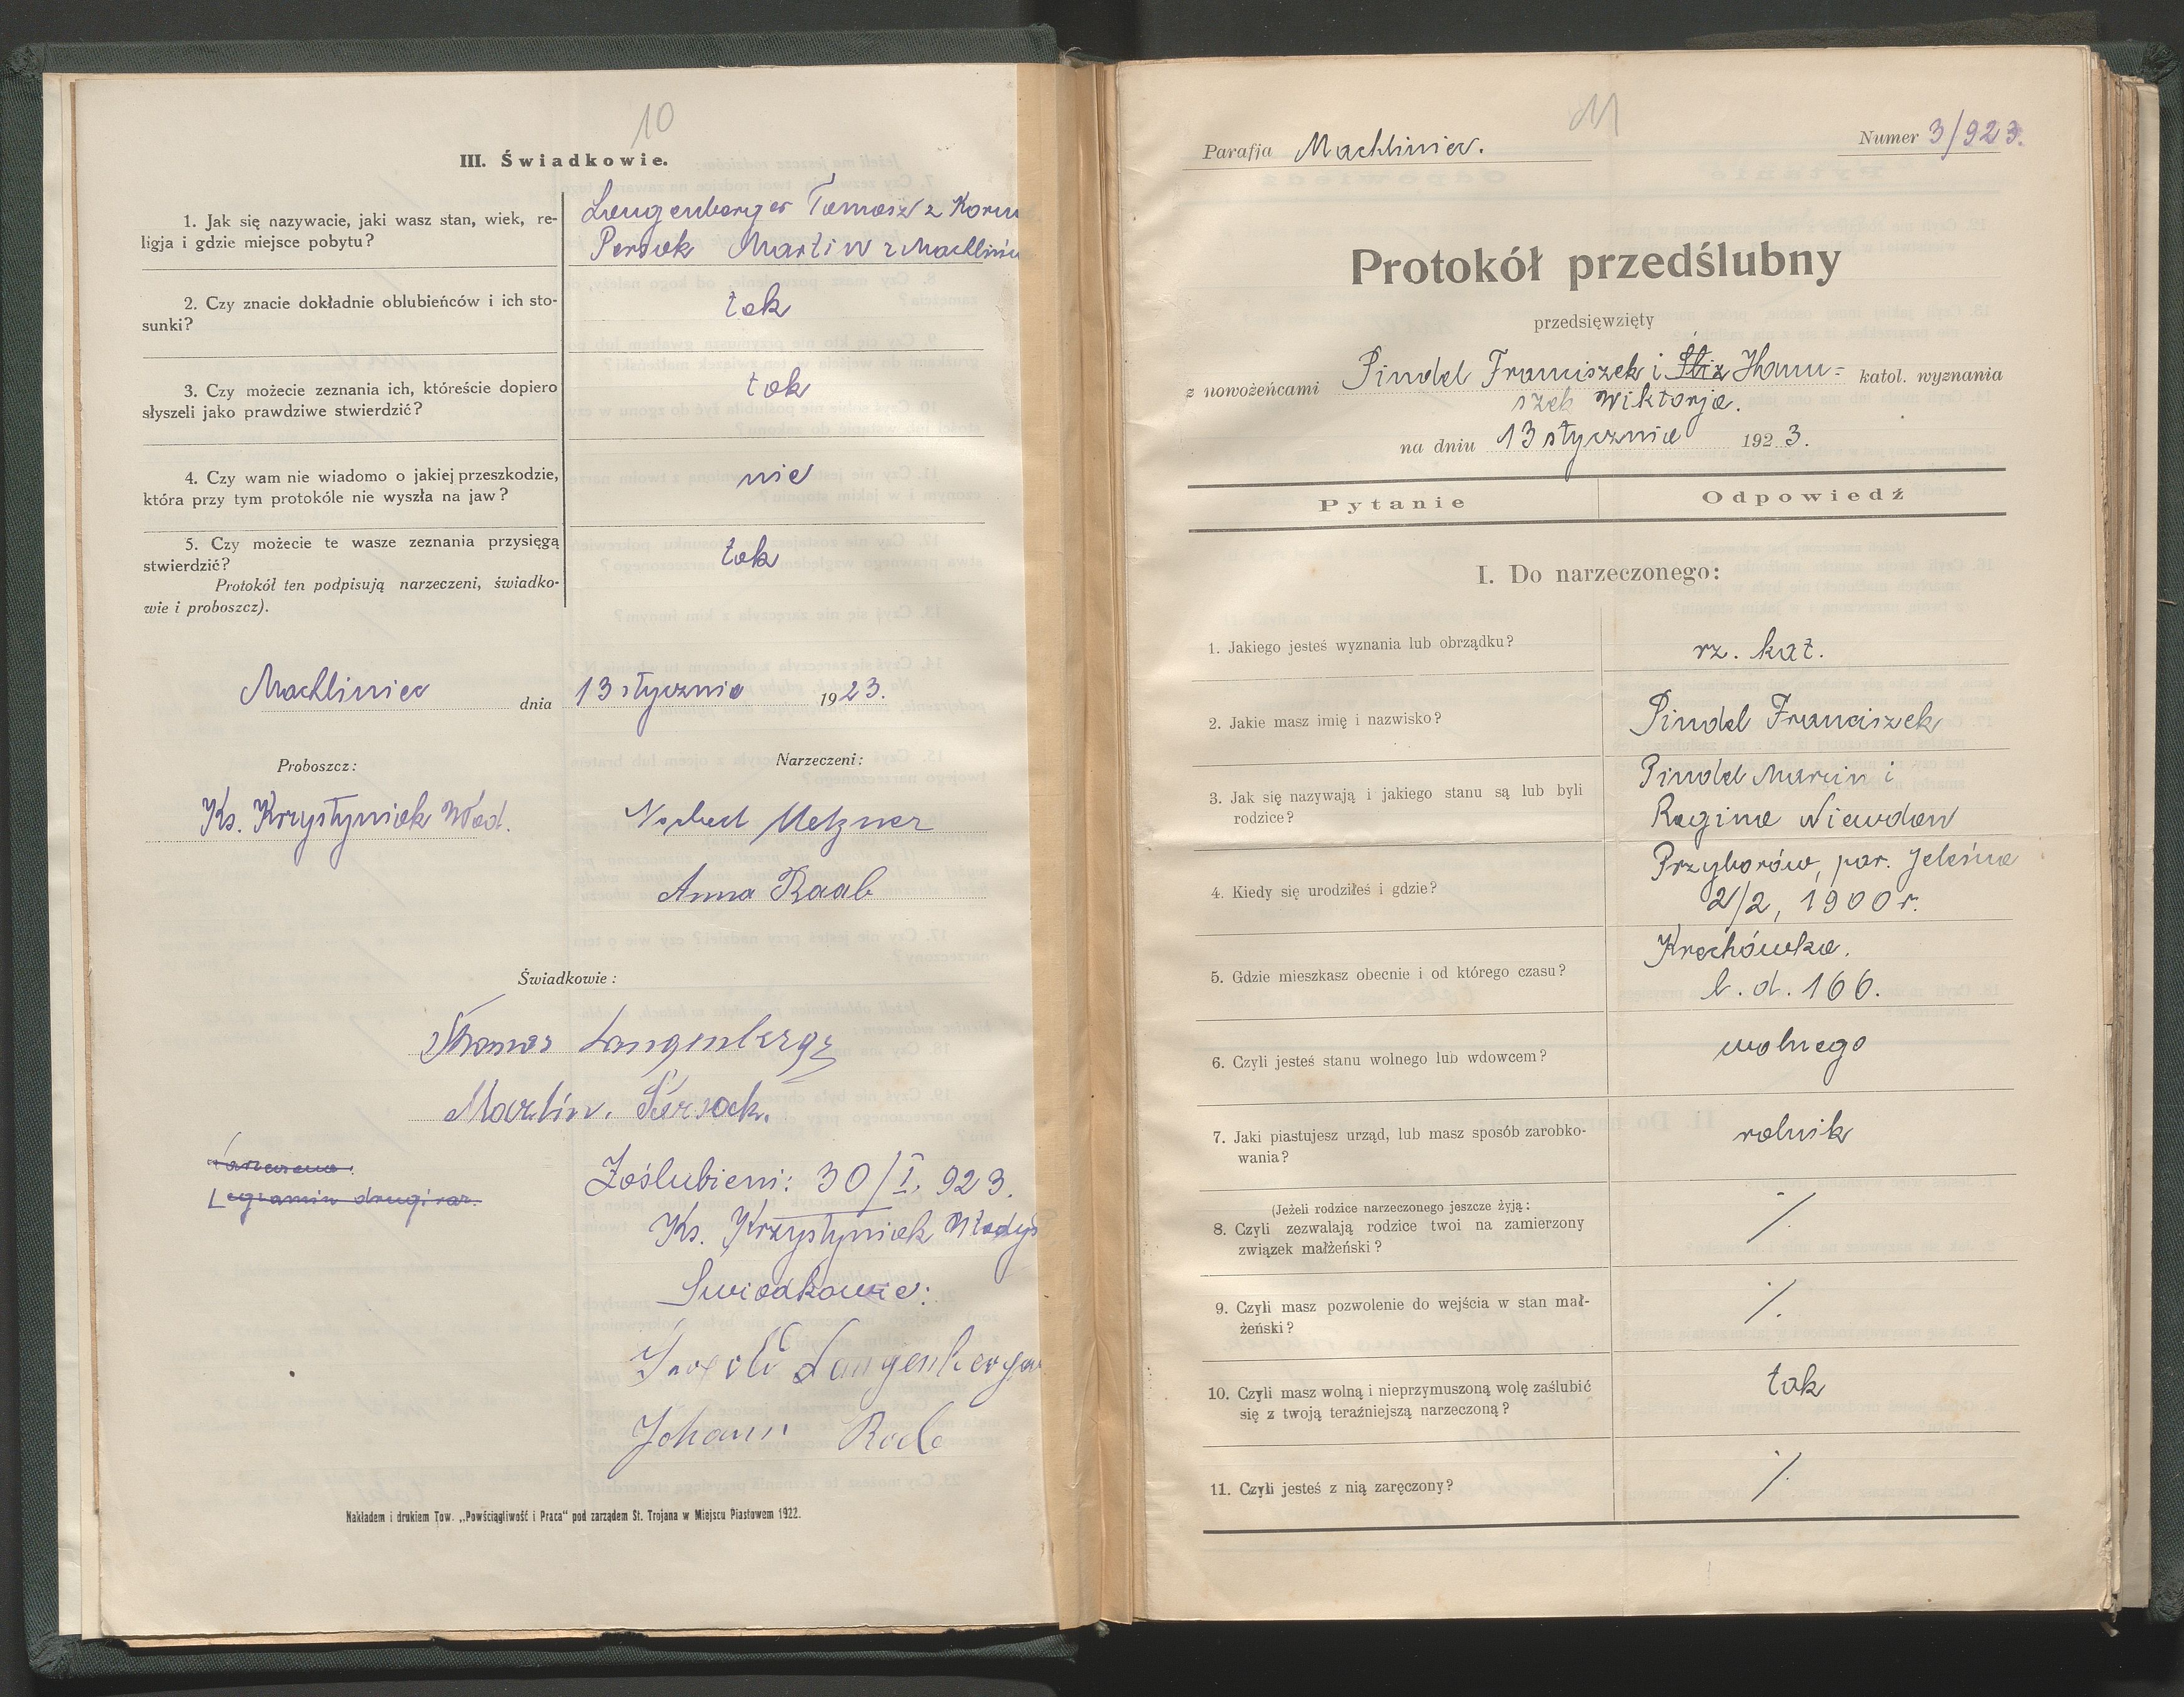 10
III. Świadkowie.
1. Jak się nazywacie, jaki wasz stan, wiek, re-
ligja i gdzie miejsce pobytu?
Langenberger Tomasz z
Persak Martin z
2. Czy znacie dokładnie oblubieńców i ich sto-
sunki?
tak
3. Czy możecie zeznania ich, któreście dopiero
słyszeli jako prawdziwe stwierdzić?
tak
4. Czy wam nie wiadomo o jakiej przeszkodzie,
która przy tym protokóle nie wyszła na jaw?
nie
5. Czy możecie te wasze zeznania przysięgą
stwierdzić?
tak
Protokół ten podpisują narzeczeni, świadko-
wie i proboszcz).
Machliniec dnia 13 stycznia 1923.
Proboszcz:
Narzeczeni:
Ks. Krzystyniak Wład.
Norbert Metzner
Anna Raab
Świadkowie:
Thomas
Martin.
drugi raz.
Zaślubieni: 30/I. 923.
Ks. Krzystyniak Władys
Świadkowie:
Langenberger
Johann
Nakładem i drukiem Tow. „Powściągliwość i Praca" pod zarządem St. Trojana w Miejscu Piastowem 1922.
11
Parafja Machliniec.
Numer 3/923.
Protokół przedślubny
przedsięwzięty
z nowożeńcami Pindel Franciszek i Hanu= katol. wyznania
szek Wiktorja.
na dniu 13 stycznia 1923.
Pytanie
Odpowiedź
I. Do narzeczonego:
1. Jakiego jesteś wyznania lub obrządku?
rz. kat.
2. Jakie masz imię i nazwisko?
Pindel Franciszek
3. Jak się nazywają i jakiego stanu są lub byli
rodzice?
Pindel Marcin i
Regina
4. Kiedy się urodziłeś i gdzie?
Przyborów, par. Jeleśnia
2/2, 1900 r.
5. Gdzie mieszkasz obecnie i od którego czasu?
Krechówka.
l. d. 166.
6. Czyli jesteś stanu wolnego lub wdowcem?
wolnego
7. Jaki piastujesz urząd, lub masz sposób zarobko-
wania?
rolnik
(Jeżeli rodzice narzeczonego jeszcze żyją:
8. Czyli zezwalają rodzice twoi na zamierzony
związek małżeński?
·/.
9. Czyli masz pozwolenie do wejścia w stan mał-
żeński?
·/.
10. Czyli masz wolną i nieprzymuszoną wolę zaślubić
się z twoją teraźniejszą narzeczoną?
tak
11. Czyli jesteś z nią zaręczony?
·/.